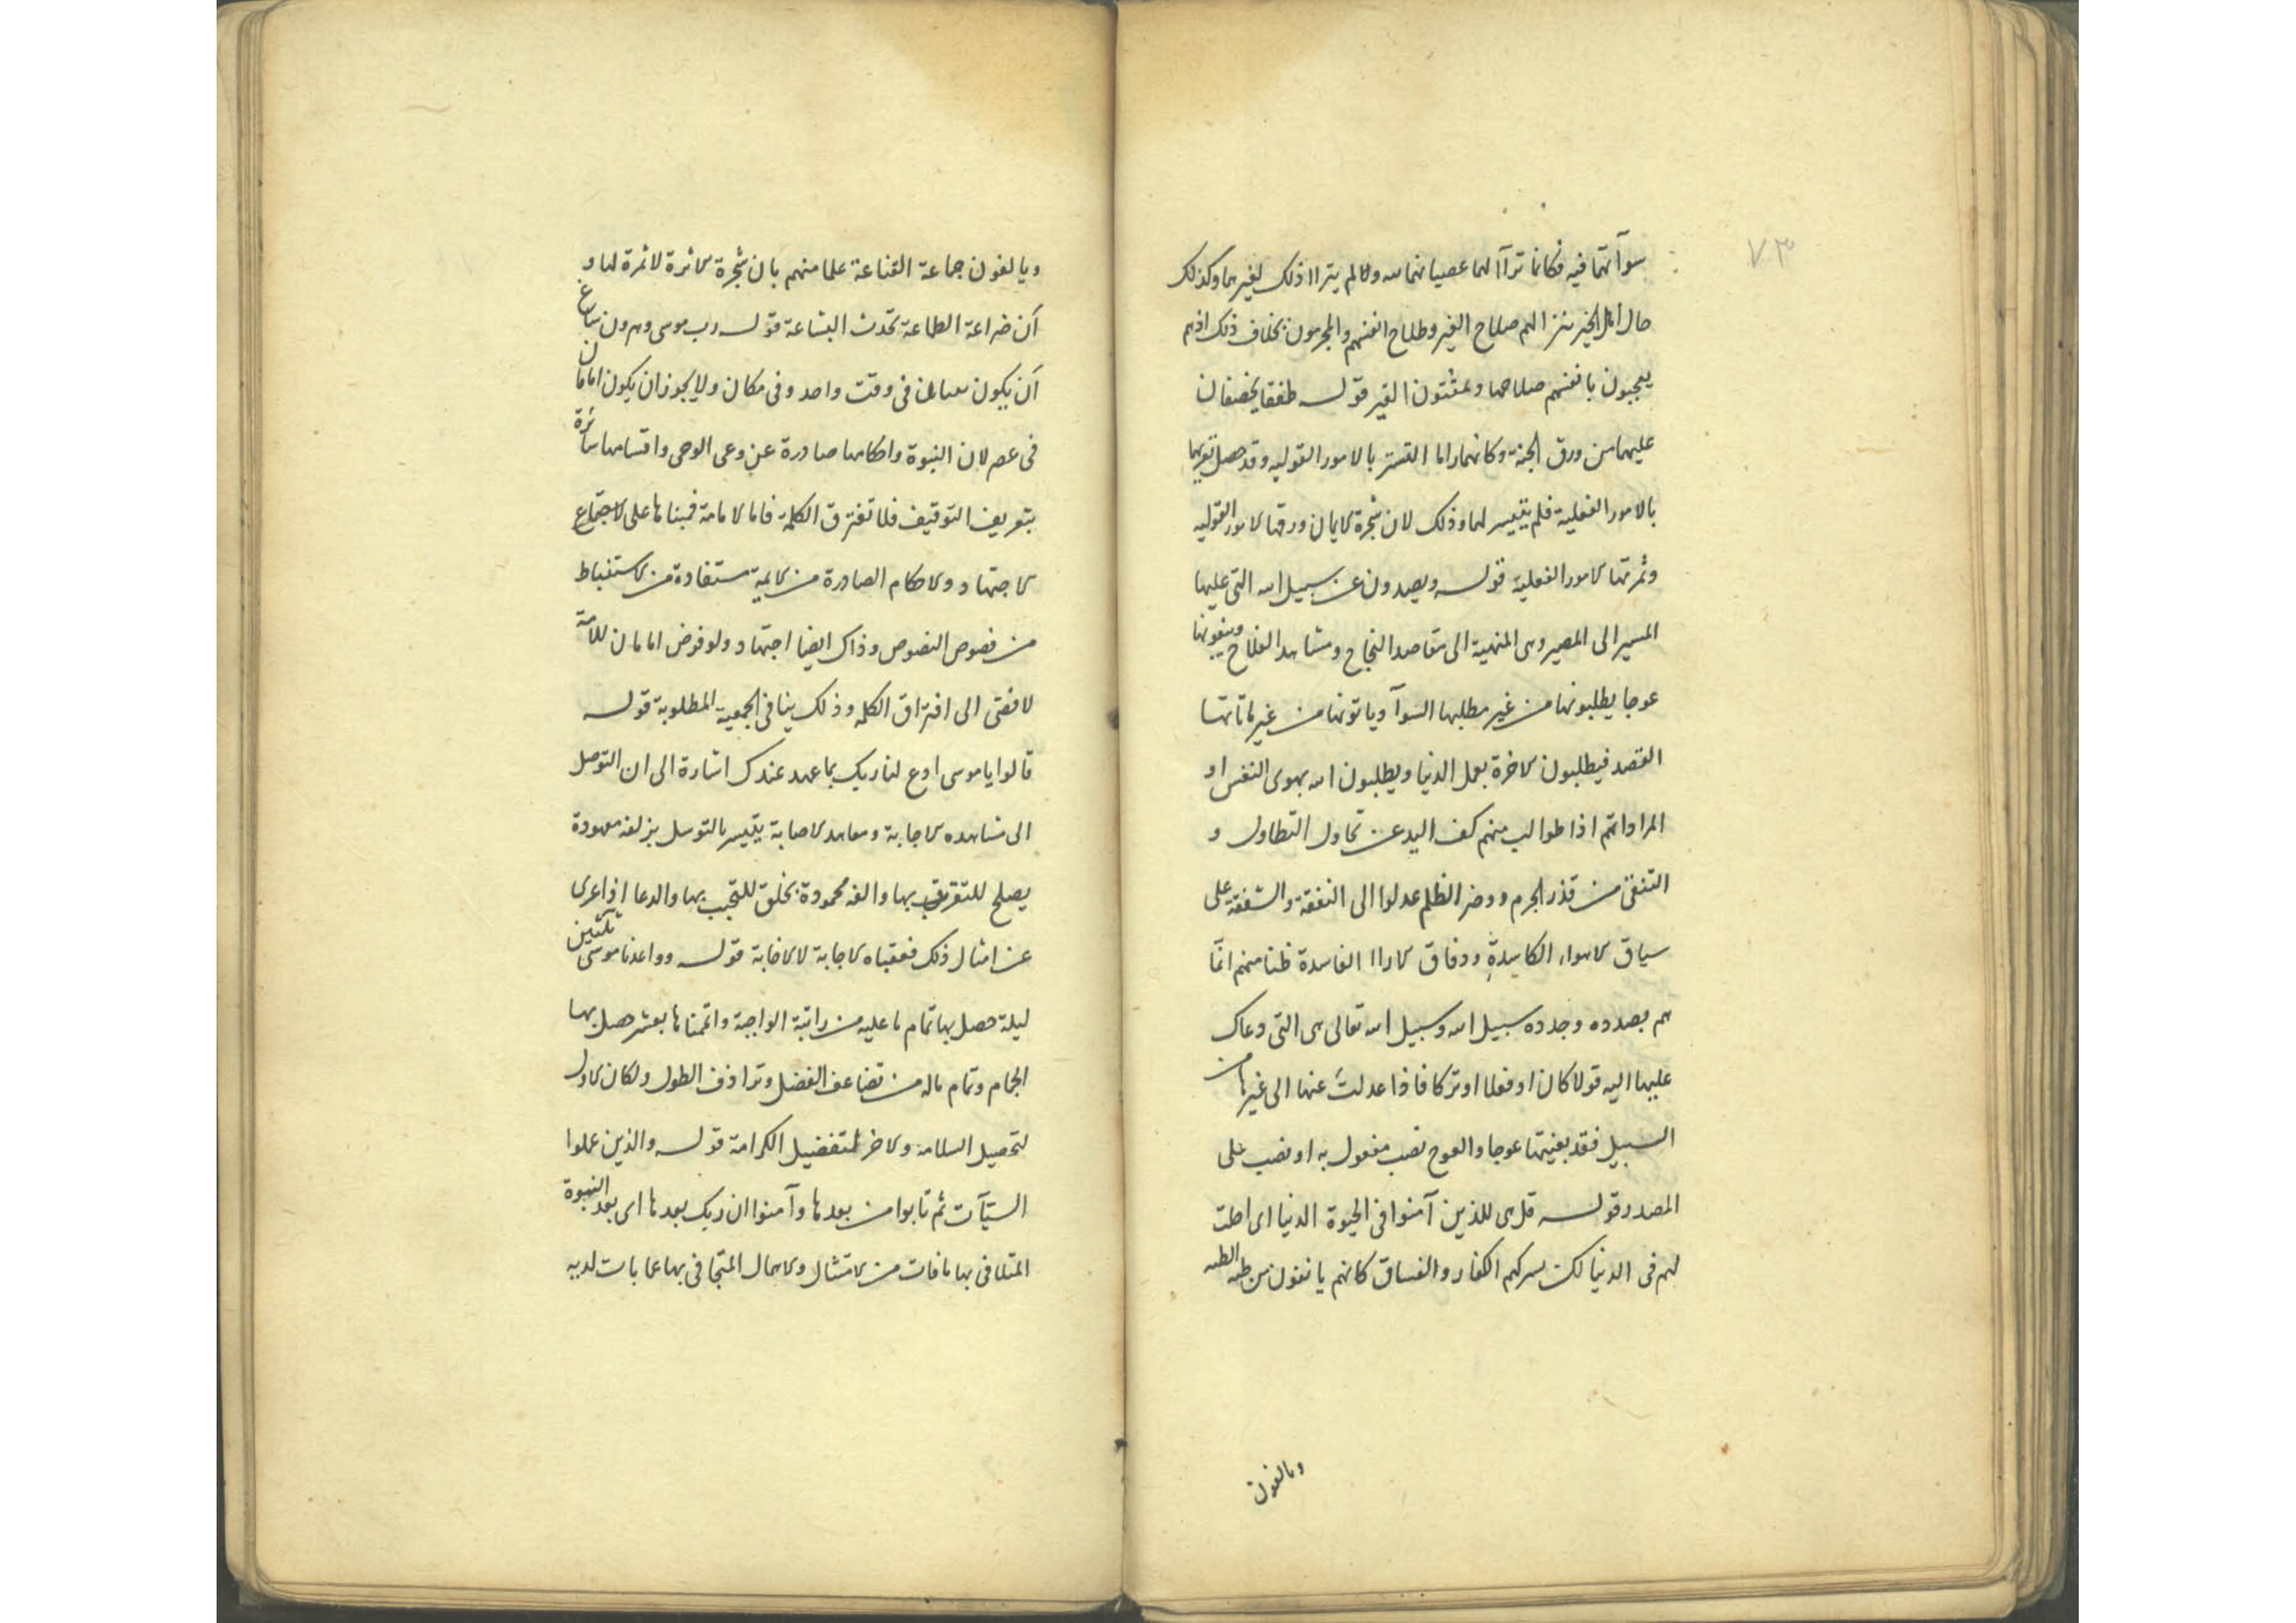 ٧٣
سوآتهما فيه فكانما ترآا لهما عصيانهما لله ولما لم يترااذلك لغيرهما وكذلك
حال اهل الخير يتزا لهم صلاح الغير وطلاح انفسهم والمجرمون بخلاف ذلك اذهم
يعجبون بانفسهم صلاحها و الغير قولـه طفقا يخصفان
عليهما من ورق الجنة وكانهما راما التستر بالامور القوليه وقد حصل تعريهما
بالامور الفعلية فلم يتيسر لهما وذلك لان شجرة الايمان ورقها الامور القوليه
وثمرتها الامور الفعلية قولـه ويصدون عن سبيل الله التي عليها
المسير الى المصير وهى المنهية الى مقاصد النجاح ومشاهد الفلاح ويبغونها
عوجا يطلبونها من غير مطلبها السوآ وياتونها من غير ماتاتها
القصد فيطلبون الاخرة بعمل الدنيا ويطلبون الله بهوى النفس او
المراداتهم اذا طولب منهم كف اليد عن تحاول التطاول و
التنقى من قذر الجرم ووضر الظلم عدلوا الى النفقة والشفقة على
سياق الاهواء الكاسدة ووفاق الاراا الفاسدة ظنا منهم انما
هم بصدده وجدده سبيل الله وسبيل الله تعالى هى التي دعاك
عليها اليه قولا كان او فعلا او تركا فاذا عدلت عنها الى غيرها من
السبيل فقد بغيتها عوجا والعوج نصب مفعول به او نصب على
المصدر قولـه قل هى للذين آمنوا فى الحيوة الدنيا اى احلت
لهم فى الدنيا لكن يسركهم الكفار والفساق كانهم يانفون من الطبه
ويالفون
ويالفون جماعة القناعة علما منهم بان شجرة الاثرة لا ثمرة لها و
ان ضراعة الطماعة تحدث البشاعة قولـه رب موسى وهرون ساغ
ان يكون نبيان فى وقت واحد وفى مكان ولا يجوز ان يكون امامان
فى عصر لان النبوة واحكامها صادرة عن وعى الوحى واقسامها سائرة
بتعريف التوقيف فلا تفترق الكلمة فاما الامامة فمبناها على الاجتماع
الاجتهاد والاحكام الصادرة من الايمة مستفادة من الاستنباط
من فصوص النصوص وذاك ايضا اجتهاد ولو فوض امامان للامة
لافضى الى افتراق الكلمه وذلك ينافى الجمعية المطلوبة قولـه
قالوا ياموسى ادع لنا ربك بما عهد عندك اشارة الى ان التوصل
الى مشاهده الاجابة ومعاهد الاصابة يتيسر بالتوسل بزلفه معهودة
يصلح للتقريب بها والفه محمودة بخلق للتحبب بها والدعا اذا عرى
عن امثال ذلك فعقباه الاجابة لا الاخابة قولـه وواعدنا موسى ثلثين
ليلة حصل بها تمام ما عليه من راتبة الواجبة واتممناها بعشر حصل بها
الجمام وتمام ماله من تضاعف الفضل وترادف الطول ولكان الاول
لتحصيل السلامة والاخر لتفضيل الكرامة قولـه والذين عملوا
السيآت ثم تابوا من بعدها وآمنوا ان ربك بعدها اى بعد التوبة
المتلافى بها ما فات من الامتثال والاعمال المتجافى بها عما بات لديه